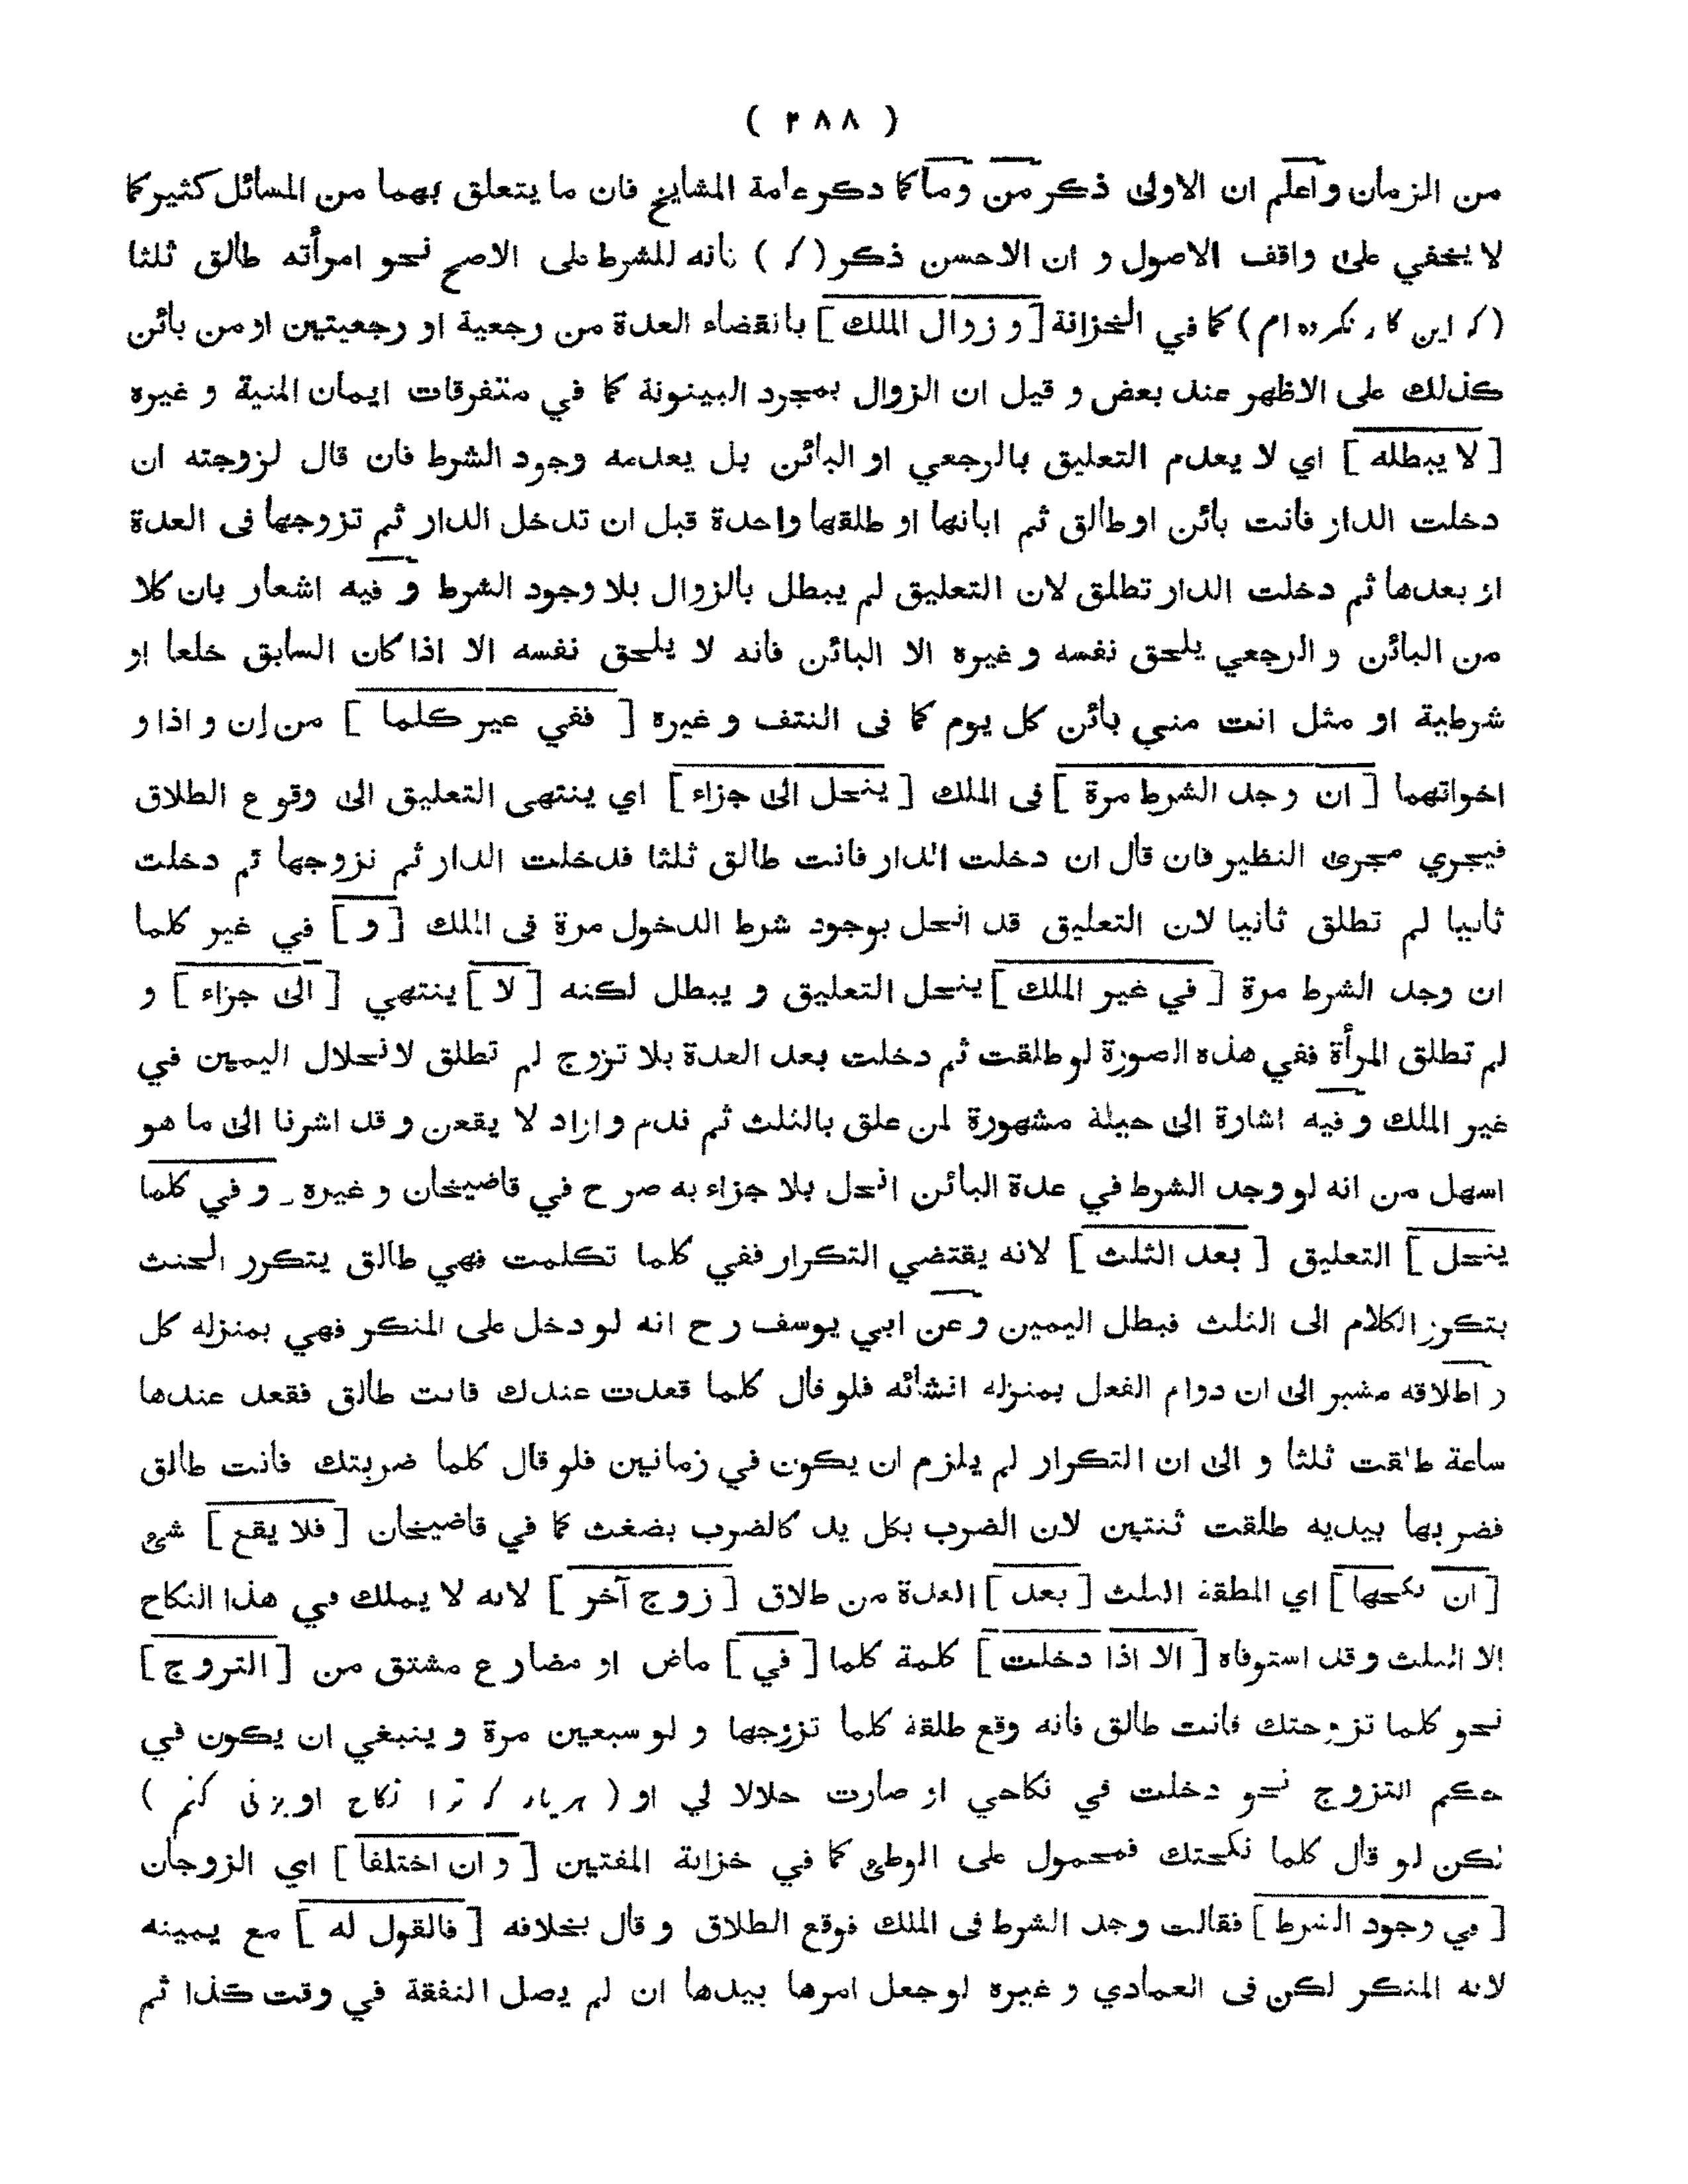 ( ٢٨٨ )
من الزمان واعلم ان الاولى ذكر من وما كما ذكر عامة المشايخ فان ما يتعلق بهما من المسائل كثير كما
لا يخفي على واقف الاصول و ان الاحسن ذكر ( كه ) فانه للشرط على الاصح نحو امرأته طالق ثلثا
( كه اين كار نكرده ام ) كما في الخزانة [ و زوال الملك ] بانقضاء العدة من رجعية او رجعيتين او من بائن
كذلك على الاظهر عند بعض و قيل ان الزوال بمجرد البينونة كما في متفرقات ايمان المنية و غيره
[ لا يبطله ] اي لا يعدم التعليق بالرجعي او البائن بل يعدمه وجود الشرط فان قال لزوجته ان
دخلت الدار فانت بائن او طالق ثم ابانها او طلقها واحدة قبل ان تدخل الدار ثم تزوجها فى العدة
او بعدها ثم دخلت الدار تطلق لان التعليق لم يبطل بالزوال بلا وجود الشرط و فيه اشعار بان كلا
من البائن و الرجعي يلحق نفسه و غيره الا البائن فانه لا يلحق نفسه الا اذا كان السابق خلعا او
شرطية او مثل انت مني بائن كل يوم كما فى النتف و غيره [ ففي غير كلما ] من إن و اذا و
اخواتهما [ ان وجد الشرط مرة ] فى الملك [ ينحل الى جزاء ] اي ينتهى التعليق الى وقوع الطلاق
فيجري مجرى النظير فان قال ان دخلت الدار فانت طالق ثلثا فدخلت الدار ثم تزوجها ثم دخلت
ثانيا لم تطلق ثانيا لان التعليق قد انحل بوجود شرط الدخول مرة فى الملك [ و ] في غير كلما
ان وجد الشرط مرة [ في غير الملك ] ينحل التعليق و يبطل لكنه [ لا ] ينتهي [ الى جزاء ] و
لم تطلق المرأة ففي هذه الصورة لو طلقت ثم دخلت بعد العدة بلا تزوج لم تطلق لانحلال اليمين في
غير الملك و فيه اشارة الى حيلة مشهورة لمن علق بالثلث ثم ندم و اراد لا يقعن و قد اشرنا الى ما هو
اسهل من انه لو وجد الشرط في عدة البائن انحل بلا جزاء به صرح في قاضيخان و غيره _ و في كلما
ينحل ] التعليق [ بعد الثلث ] لانه يقتضي التكرار ففي كلما تكلمت فهي طالق يتكرر الحنث
بتكرر الكلام الى الثلث فبطل اليمين و عن ابي يوسف رح انه لو دخل على المنكر فهي بمنزله كل
و اطلاقه مشير الى ان دوام الفعل بمنزله انشائه فلو قال كلما قعدت عندك فانت طالق فقعد عندها
ساعة طلقت ثلثا و الى ان التكرار لم يلزم ان يكون في زمانين فلو قال كلما ضربتك فانت طالق
فضربها بيديه طلقت ثنتين لان الضرب بكل يد كالضرب بضغث كما في قاضيخان [ فلا يقع ] شئ
[ ان نكحها ] اي المطلقة الثلث [ بعد ] العدة من طلاق [ زوج آخر ] لانه لا يملك في هذا النكاح
الا الثلث و قد استوفاه [ الا اذا دخلت ] كلمة كلما [ في ] ماض او مضارع مشتق من [ التزوج ]
نحو كلما تزوجتك فانت طالق فانه وقع طلقة كلما تزوجها و لو سبعين مرة و ينبغي ان يكون في
حكم التزوج نحو دخلت في نكاحي او صارت حلالا لي او ( هربار كه ترا نكاح او بزنى كنم )
لكن لو قال كلما نكحتك فمحمول على الوطئ كما في خزانة المفتيين [ و ان اختلفا ] اي الزوجان
[ في وجود الشرط ] فقالت وجد الشرط فى الملك فوقع الطلاق و قال بخلافه [ فالقول له ] مع يمينه
لانه المنكر لكن فى العمادي و غيره لو جعل امرها بيدها ان لم يصل النفقة في وقت كذا ثم